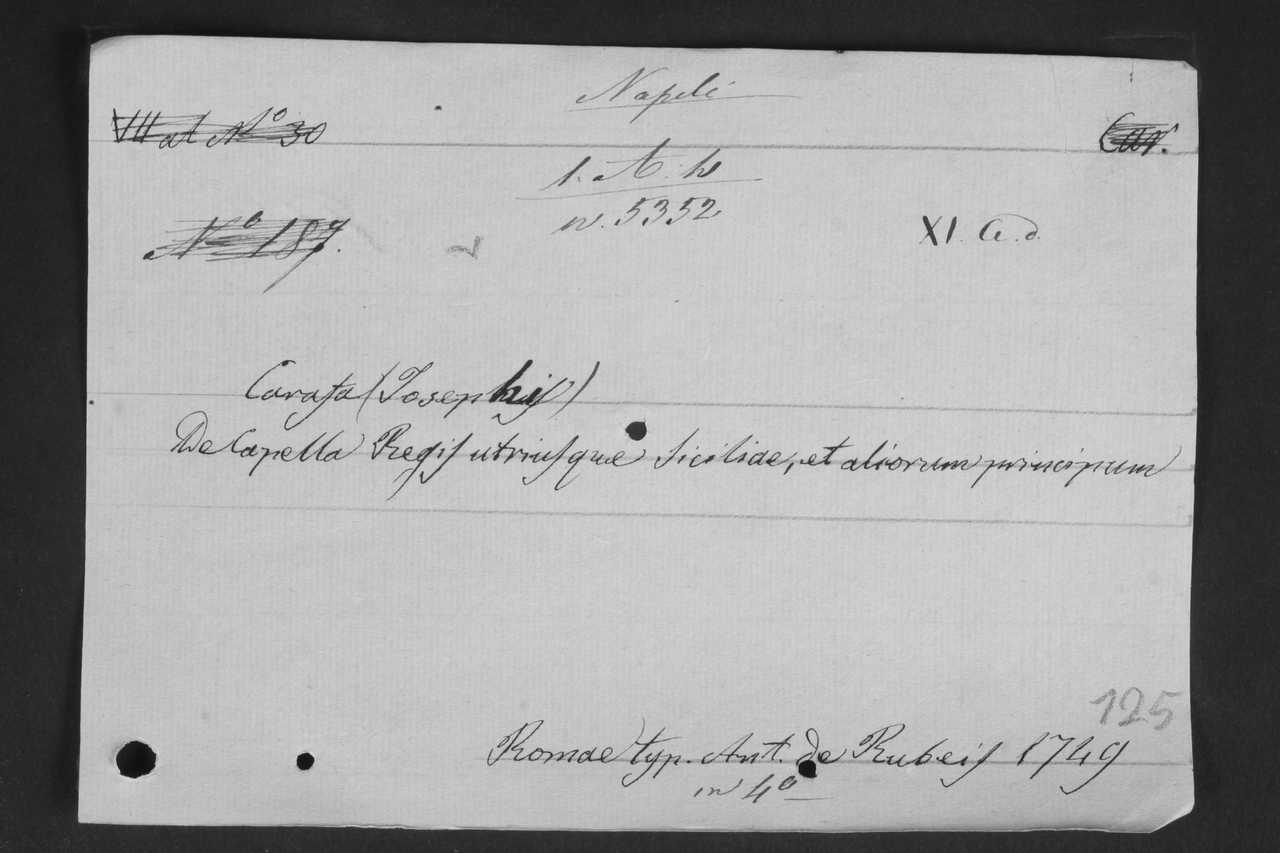 Napoli
VII at No 30
Car.
1. A. h
n. 5352
No 187.
XI. a. d.
Carafa (Josephij)
De Capella Regis utriusque Siciliae, et aliorum principum
125
Romae typ. Ant. de Rubeis 1749
in 4o